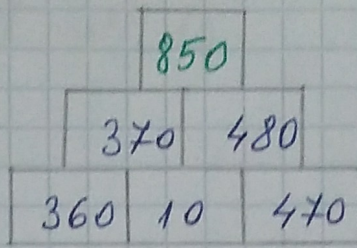 850
370 480
360 10 470